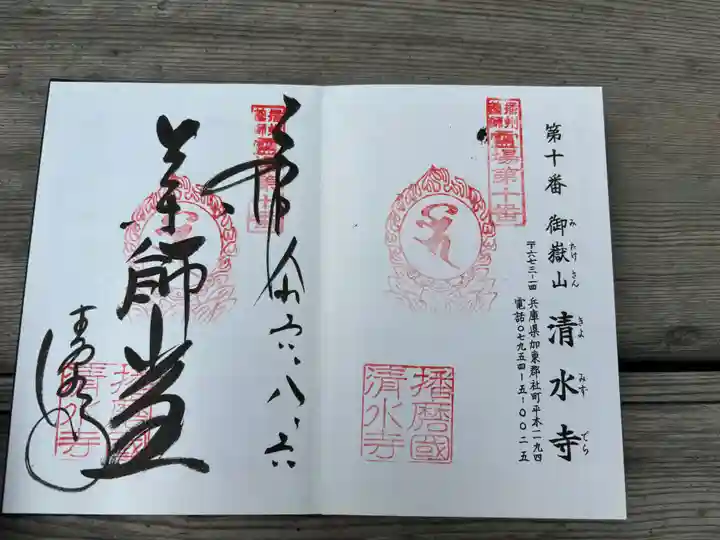 第十番 御嶽山 清水寺
み たけ さん きよ みず でら
〒六七三-一四 兵庫県加東郡社町平木一一九四
電話〇七九五四-五-〇〇二五
播州
薬師
霊場第十番
播磨國
清水寺
八、六
薬師堂
播磨國
清水寺